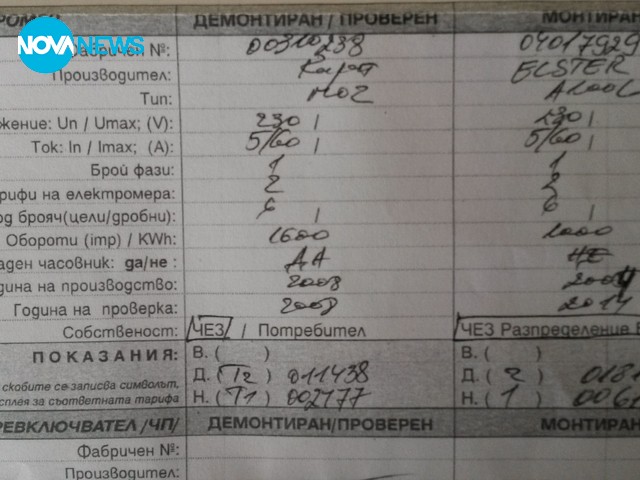 NOVANEWS
ДЕМОНТИРАН / ПРОВЕРЕН МОНТИРАН
Фабричен №: 00310238 04017929
Производител: Карат ELSTER
Тип: M02
жение: Un / Umax; (V): 230 / 230 /
Ток: In / Imax; (A): 5/60 / 5/60 /
Брой фази: 1 1
арифи на електромера: 2 2
од брояч(цели/дробни): 6 / 6 /
Обороти (imp) / KWh: 1600 1000
аден часовник: да/не : ДА НЕ
дина на производство: 2008
Година на проверка: 2008 2014
Собственост: ЧЕЗ / Потребител ЧЕЗ Разпределение
ПОКАЗАНИЯ: В. ( ) В. ( )
скобите се записва символът, Д. ( T2 ) 011438 Д. ( 2 ) 0181
сплея за съответната тарифа Н. ( T1 ) 002177 Н. ( 1 ) 0061
РЕВКЛЮЧВАТЕЛ /ЧП/ ДЕМОНТИРАН/ПРОВЕРЕН МОНТИРАН
Фабричен №:
Производител: